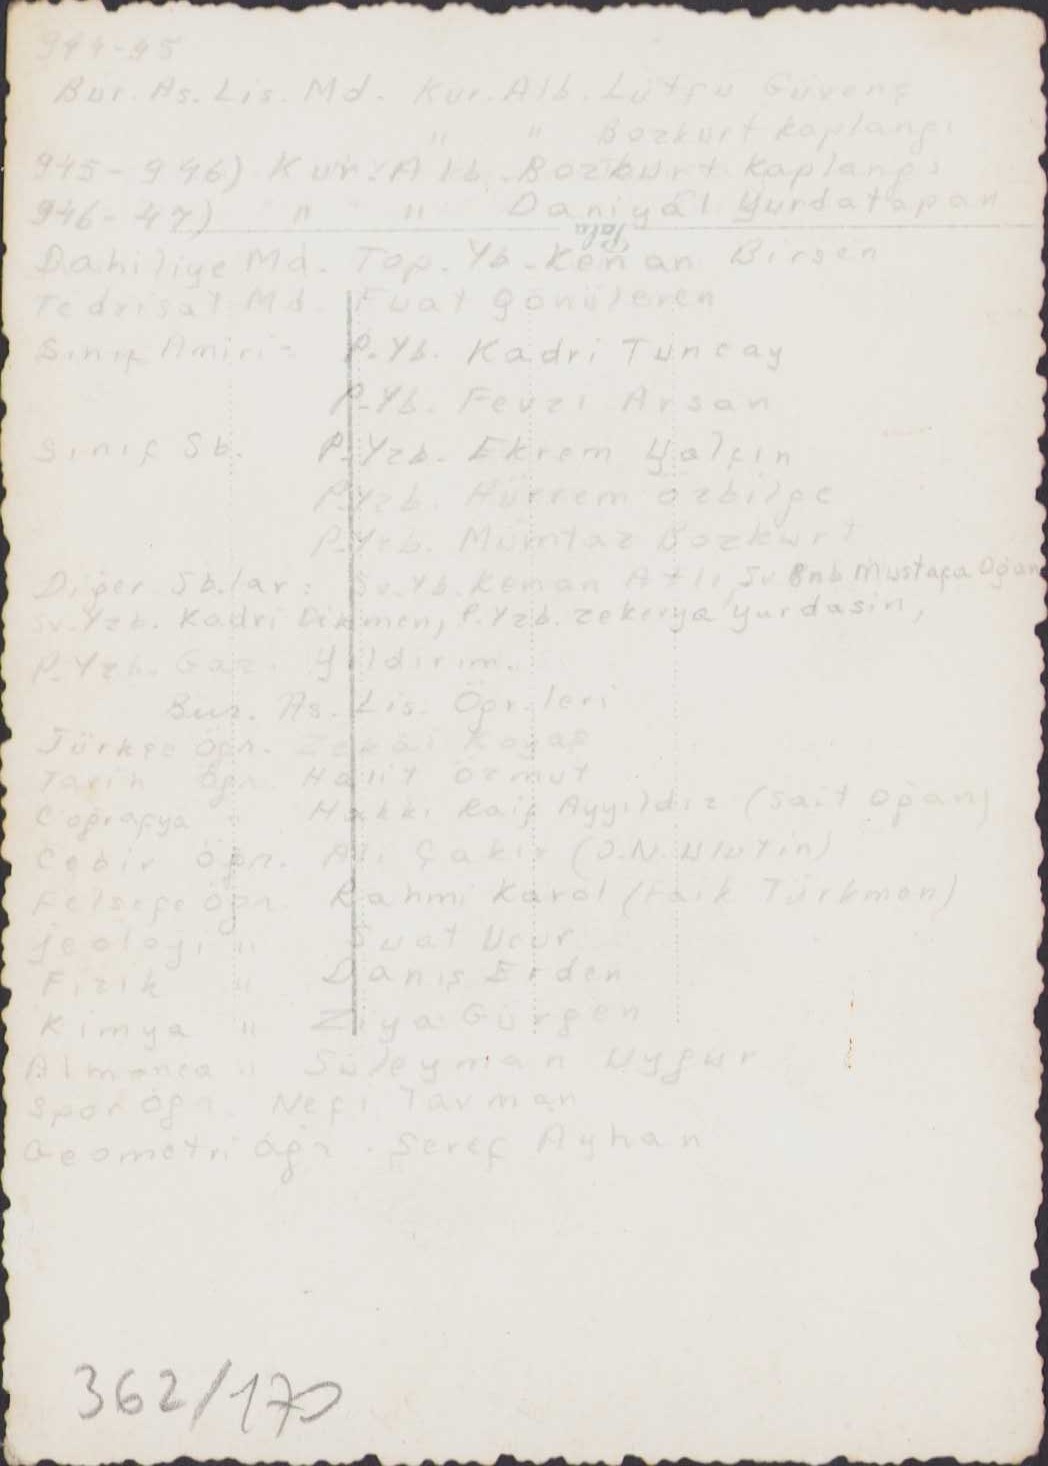 944-45
Bur. As. Lis. Md. Kur. Alb. Lütfü Güvenç
" " Bozkurt Kaplangı
945-946) Kur. Alb. Bozkurt Kaplangı
946-47) " " Daniyal Yurdatapan
Pala
Dahiliye Md. Top. Yb. Kenan Birsen
Tedrisat Md. Fuat Gönüleren
Sınıf Amiri= P.Yb. Kadri Tuncay
P.Yb. Fevzi Arsan
Sınıf Sb. P.Yzb. Ekrem Yalçın
P.Yzb. Hürrem Özbilge
P.Yzb. Mümtaz Bozkurt
Diğer Sb.lar: Sv.Yb. Keman Atlı, Sv Bnb Mustafa Oğan
Sv.Yzb. Kadri Dikmen, P.Yzb. Zekerya Yurdasin,
P.Yzb. Gazi Yıldırım.
Bur. As. Lis. Öğr.leri
Türkçe Öğr. Zekâi
Tarih Öğr. Halit Özmut
Coğrafya " Hakkı Raif Ayyıldız (Sait Oğan)
Cebir Öğr. Ali Çakır (O.N. Ulutin)
Felsefe Öğr. Rahmi Karol (Faik Türkmen)
Jeoloji " Suat Ucur
Fizik " Daniş Erden
Kimya " Ziya Gürgen
Almanca " Süleyman Uygur
Spor Öğr. Neçi Tavman
Geometri Öğr. Şeref Ayhan
362/170